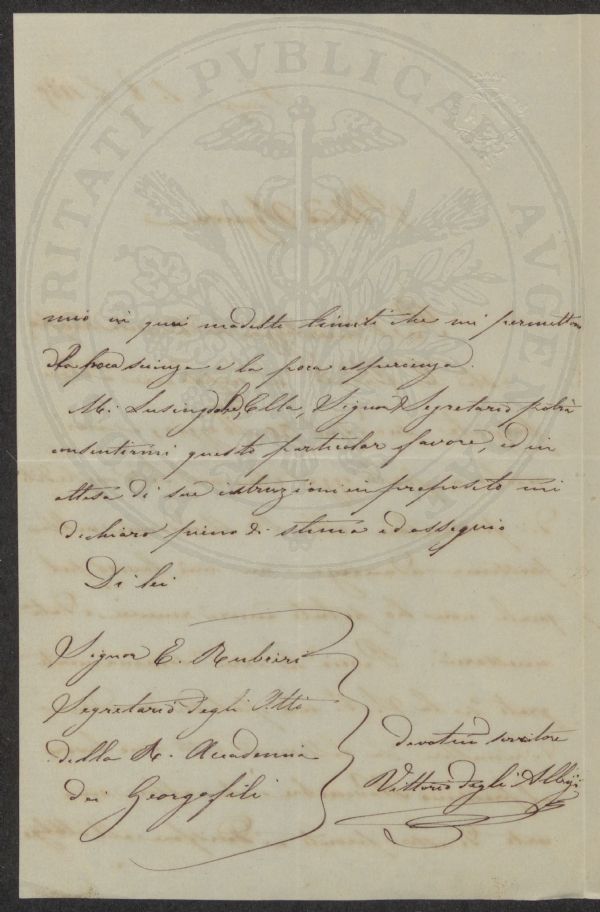 PROSPERITATI PVBLICAE AVGENDAE
mio in quei modesti limiti che mi permettono
la poca scienza e la poca esperienza.
Mi Lusingo che, Ella, Signor Segretario potrà
consentirmi questo particolar favore, ed in
attesa di sue istruzioni in proposito mi
dichiaro pieno di stima ed ossequio
Di lei
Signor E. Rubieri
Segretario degli Atti
della R. Accademia
dei Georgofili
devotmo servitore
Vittorio degli Albizi